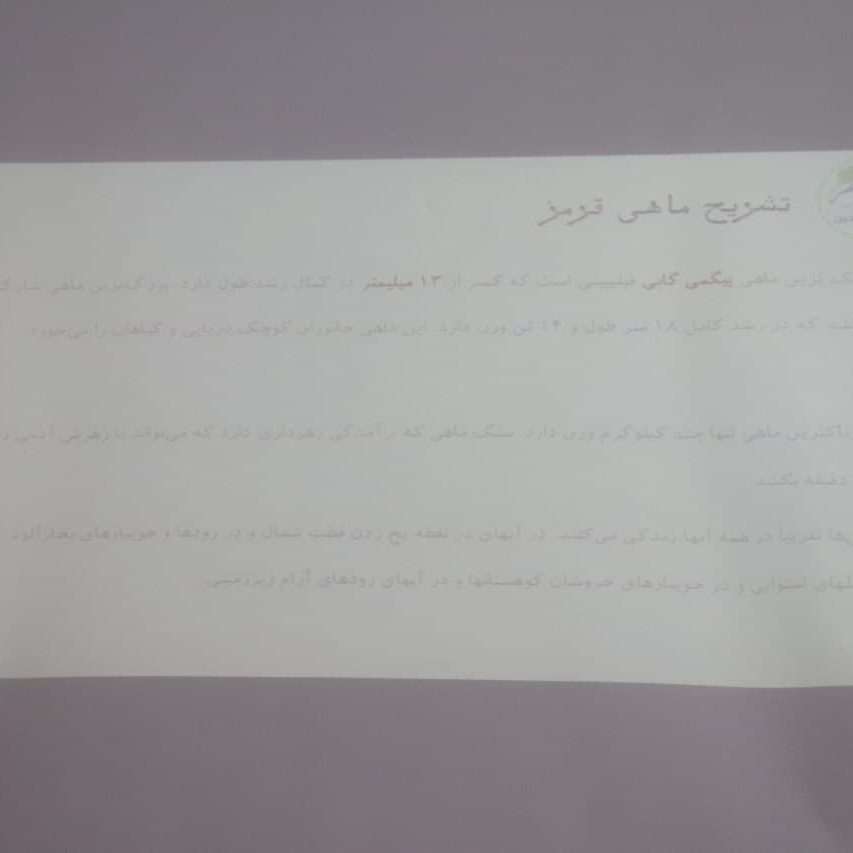 تشریح ماهی قزمز
ک ترین ماهی پیگمی گابی فیلیپینی است که کمتر از ۱۳ میلیمتر در کمال رشد طول دارد. بزرگ‌ترین ماهی شارک
شد که در رشد کامل ۱۸ متر طول و ۱۴ تن وزن دارد. این ماهی جانوران کوچک دریایی و گیاهان را می‌خورد.
ناکترین ماهی تنها چند کیلوگرم وزن دارد. سنگ ماهی که برآمدگی زهرداری دارد که می‌تواند با زهرش آدمی را
دقیقه بکشد.
ها تقریباً در همه آبها زندگی می‌کنند. در آبهای در نقطه یخ زدن قطب شمال و در رودها و جویبارهای بخارآلود
لهای استوایی و در جویبارهای خروشان کوهستانها و در آبهای رودهای آرام زیرزمینی.